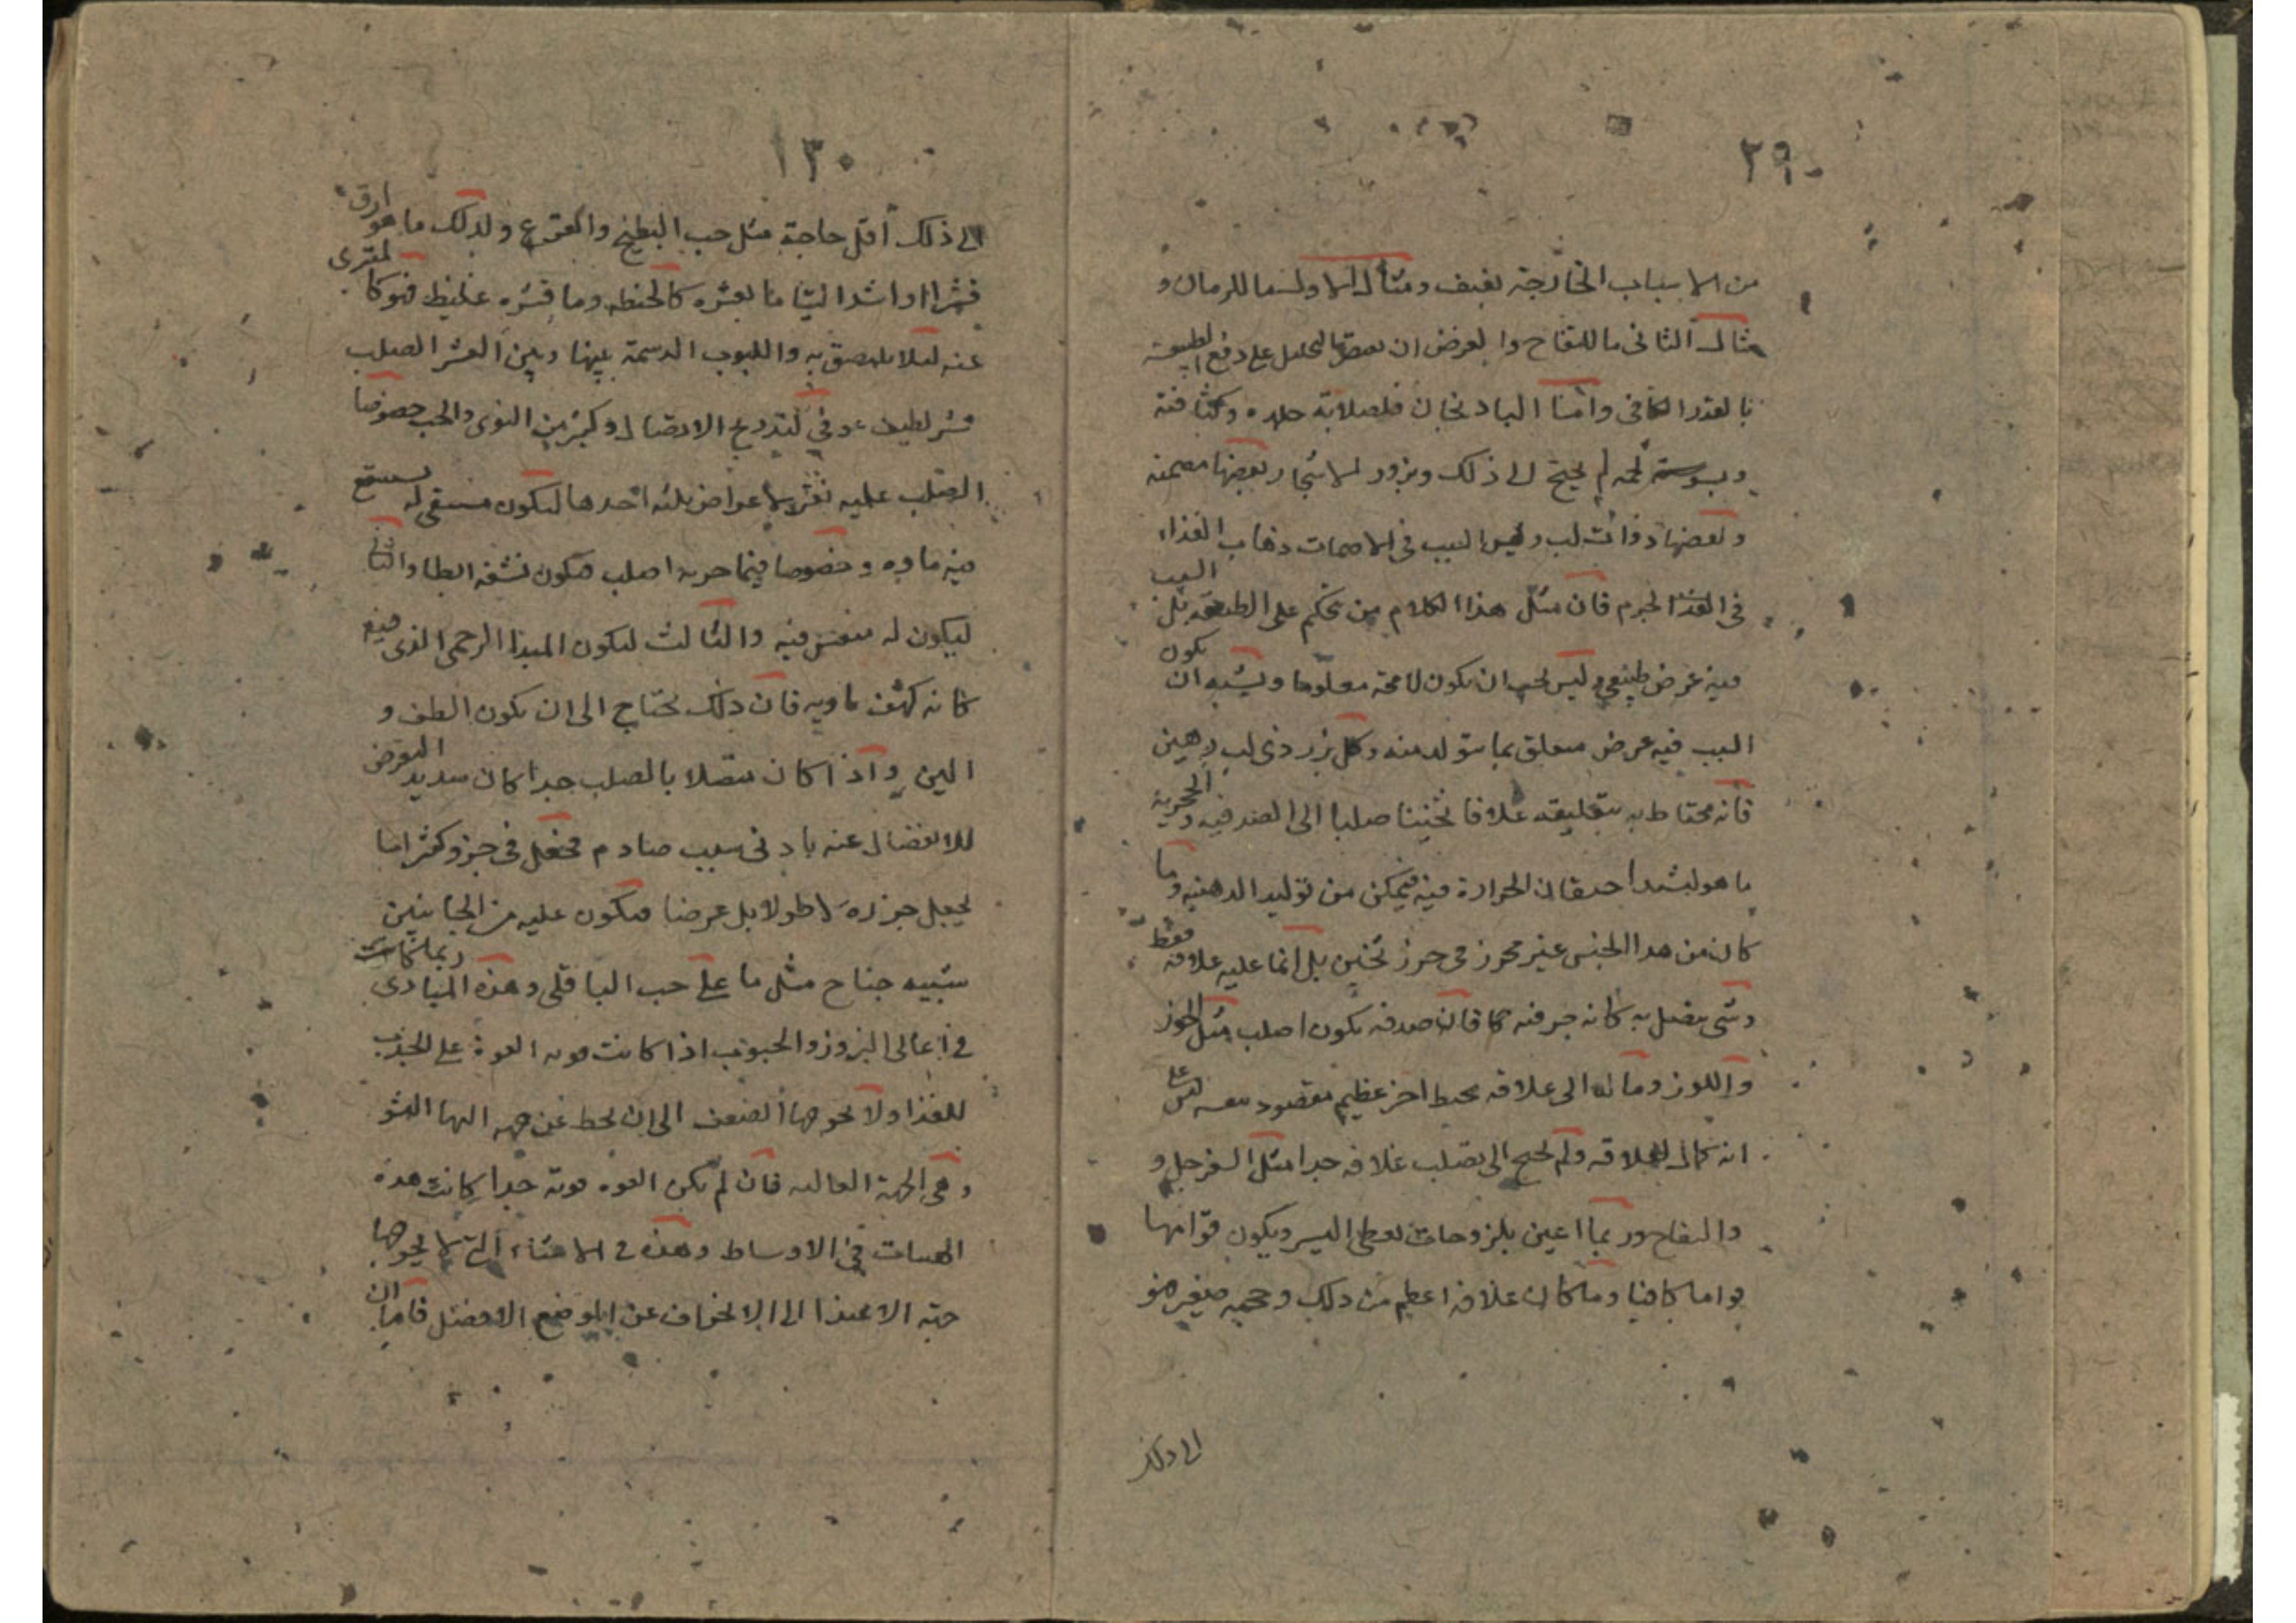 ٢٩
من الاسباب الخارجة بعنف ومثال الاول ما للرمان و
مثال الثانى ما للتفاح والغرض ان على دفع الطبيعة
بالقدر الكافى واما الباذنجان فلصلابة جلده وكثافته
ويبوسة لحمه لم يحتج الى ذلك وبزور الاشجار بعضها مصمته
وبعضها ذوات لب وليس السبب فى الاصمات ذهاب الغذاء
فى الغذا لجرم فان مثل هذا الكلام من تحكم على الطبيعة بل السبب
فيه غرض طبيعى وليس يجب ان يكون لا محة معلوما ويشبه ان يكون
السبب فيه عرض متعلق بما يتولد منه وكل بزر ذى لب دهين
فانه محتاط به بتغليقه غلافا ثخينا صلبا الى الصدفيه والحجرية
ما هو ليشتد احتقان الحرارة فيه فيمكن من توليد الدهنيه وما
كان من هذا الجنس غير محرز فى حرز ثخين بل انما عليه غلافه فقط
وشى يتصل به كانه جرفته كا فان صدفه يكون اصلب مثل الجوز
واللوز وماله الى علاقه محيط اخر عظيم مقصود نفسه ليس على
انه كمال لغلافه ولم يحتج الى تصلب غلافه جدا مثل السفرجل و
والتفاح وربما اعين بلزوجات تعطى اليسر ويكون قوامها
قواما كافيا وما كان غلافه اعظم من ذلك وحجمه صغير فهو
الى ذلك
١٣٠
الى ذلك اقل حاجة مثل حب البطيخ والقرع ولذلك ما هو ارق
قشرا او اشد التيا ما بقشره كالحنطه وما قشره غليظ فهو كالمتبرى
عنه لئلا يلتصق به واللبوب الدسمة بينها وبين القشر الصلب
قشر لطيف عرقى لتدرج الاتصال وكثير من النوى والحب خصوصا
الصلب عليه نقر لاعراض ثلثه احدها ليكون مستقى له يستنقع
فيه ماوه وخصوصا فيما جرمه اصلب فيكون نشفه ابطا والثانى
ليكون له متنفس فيه والثالث ليكون المبدا الرحمى الذى فيه
كانه كهف ياويه فان ذلك يحتاج الى ان يكون الطف و
الين واذا كان متصلا بالصلب جدا كان شديد التعرض
للانفصال عنه بادنى سبب صادم فجعل فى جزء وكثيرا ما
يجعل جزره لا طولا بل عرضا فيكون عليه من الجانبين
شبيه جناح مثل ما على حب الباقلى وهذه المبادى ربما كانت
فى اعالى البزور والحبوب اذا كانت قويه القوة على الجذب
للغذا ولا يحوجها الضعف الى ان يحط عن جهه اليها النشو
وهى الجهة العاليه فان لم يكن القوه قوية جدا كانت هذه
الهيات فى الاوساط وهذه فى الاشياء التى لا يحوجها
جهة الاغتذا الى الانحراف عن الموضع الافضل فاما ان